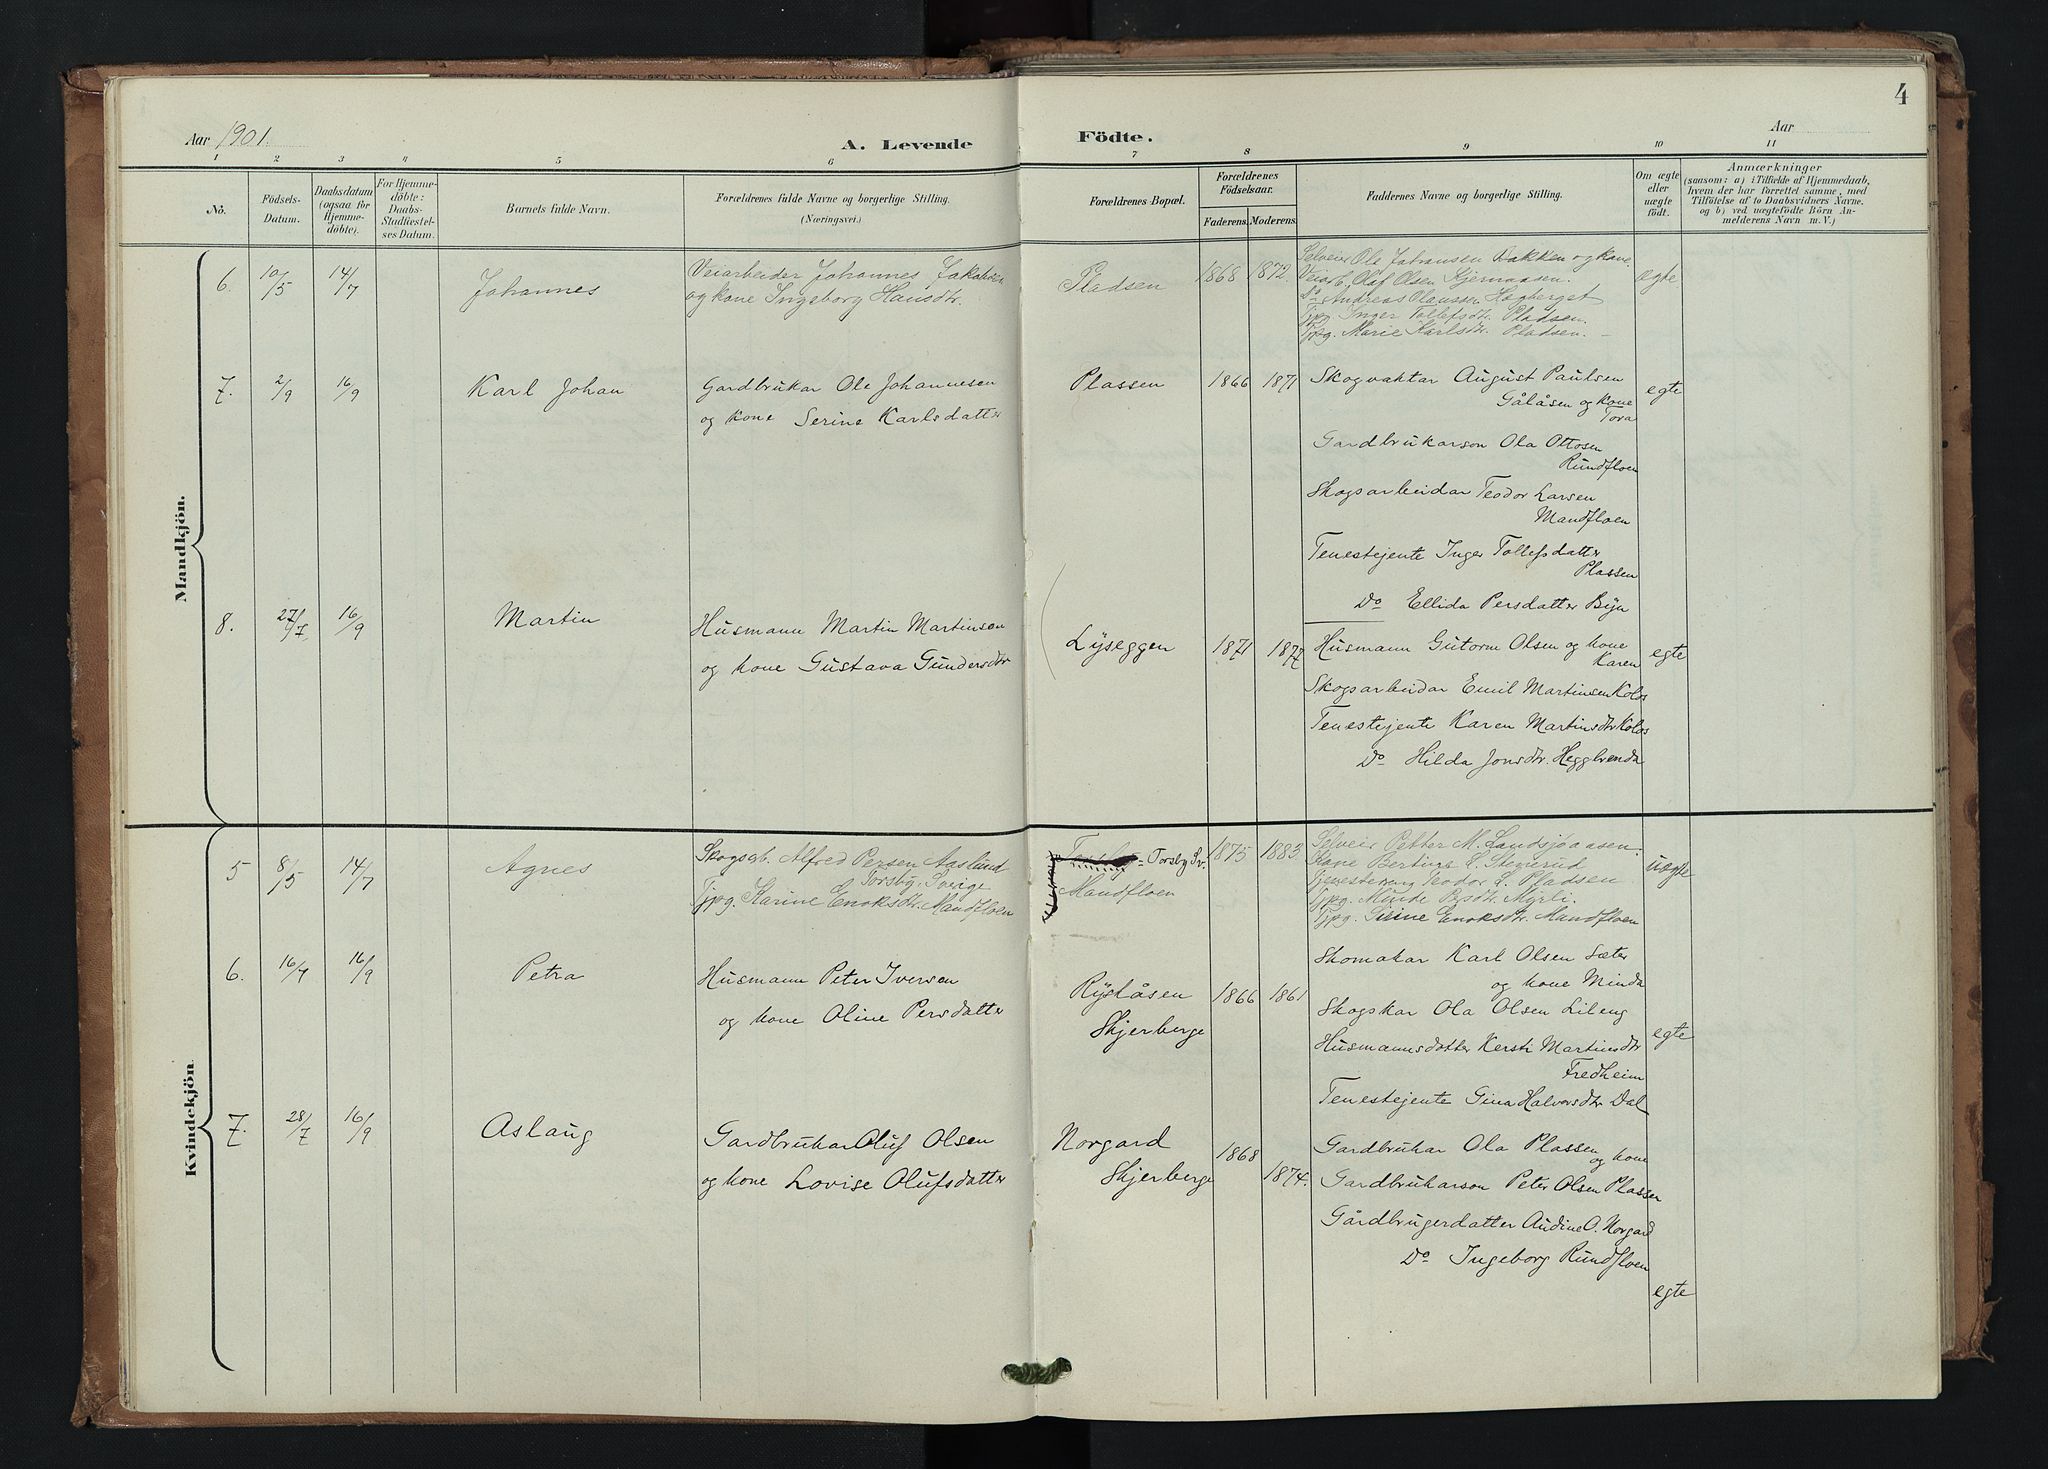 4
Aar 1901.
A. Levende Födte.
Aar
1 2 3 4 5 6 7 8 9 10 11
No.
Födsels-Datum.
Daabsdatum (ogsaa for Hjemme-döbte).
For Hjemme-döbte: Daabs-Stadfæstel-ses Datum.
Barnets fulde Navn.
Forældrenes fulde Navne og borgerlige Stilling.
(Næringsvei.)
Forældrenes Bopæl.
Forældrenes Födselsaar.
Faderens. Moderens.
Faddernes Navne og borgerlige Stilling.
Om ægte eller uægte födt.
Anmærkninger
(saasom: a) i Tilfælde af Hjemmedaab,
hvem der har forrettet samme, med
Tilföielse af to Daabsvidners Navne,
og b) ved uægtefödte Börn An-
melderens Navn m. V.)
Mandkjön.
6. 10/5 14/7 Johannes
Veiarbeider Johannes Jakobsen
og kone Ingeborg Hansdtr.
Pladsen 1868 1872.
Selveier Ole Johansen Bakken og kone.
Veiarb. Olaf Olsen Skjermaasen.
Do Andreas Olaussen Hagberget
Tjpg. Inger Tollefsdtr. Pladsen.
Tjpg. Marie Karlsdtr. Pladsen.
egte
7. 2/9 16/9 Karl Johan
Gardbrukar Ole Johannesen
og kone Serine Karlsdatter
Plassen 1866 1871
Skogvaktar August Paulsen
Gålåsen og kone
Tora
Gardbrukarson Ola Ottosen
Rundfloen
Skogsarbeidar Teodor Larsen
Mandfloen
Tenestejente Inger Tollefsdatter
Plassen
Do Ellida Persdatter Byn
egte
8. 27/7 16/9 Martin
Husmann Martin Martinsen
og kone Gustava Gundersdtr
Lyseggen 1871 1877
Husmann Gutorm Olsen og kone
Karen
Skogsarbeidar Emil Martinsen Kolos
Tenestejente Karen Martinsdtr Kolos
Do Hilda Jonsdtr. Heggbrenda
egte
Kvindekjön.
5 8/5 14/7 Agnes
Skogsgb. Alfred Persen Aaslund
Torsby, Sverige
Tjpg. Karine Enoksdtr. Mandfloen
Torsby Sv.
Mandfloen
1875 1883.
Selveier Petter M. Landsjøaasen.
Kone Bertine L. Stenerud
Tjenestedreng Teodor L. Pladsen
Tjpg. Minde Persdtr. Myrli.
Tjpg. Sirine Enoksdtr. Mandfloen
uegte
6. 16/7 16/9 Petra
Husmann Peter Iversen
og kone Oline Persdatter
Ryskåsen
Skjerberge
1866 1861
Skomakar Karl Olsen Sæter
og kone Minda
Skogskar Ola Olsen Lileng
Husmannsdatter Kersti Martinsdtr
Fredheim
Tenestejente Gina Halversdtr Dal
egte
7. 28/7 16/9 Aslaug
Gardbrukar Oluf Olsen
og kone Lovise Olufsdatter
Norgard
Skjerberge
1868 1874.
Gardbrukar Ola Plassen og kone
Gardbrukarson Peter Olsen Plassen
Gårdbrugerdatter Audine O. Norgard
Do Ingeborg Rundfloen
egte